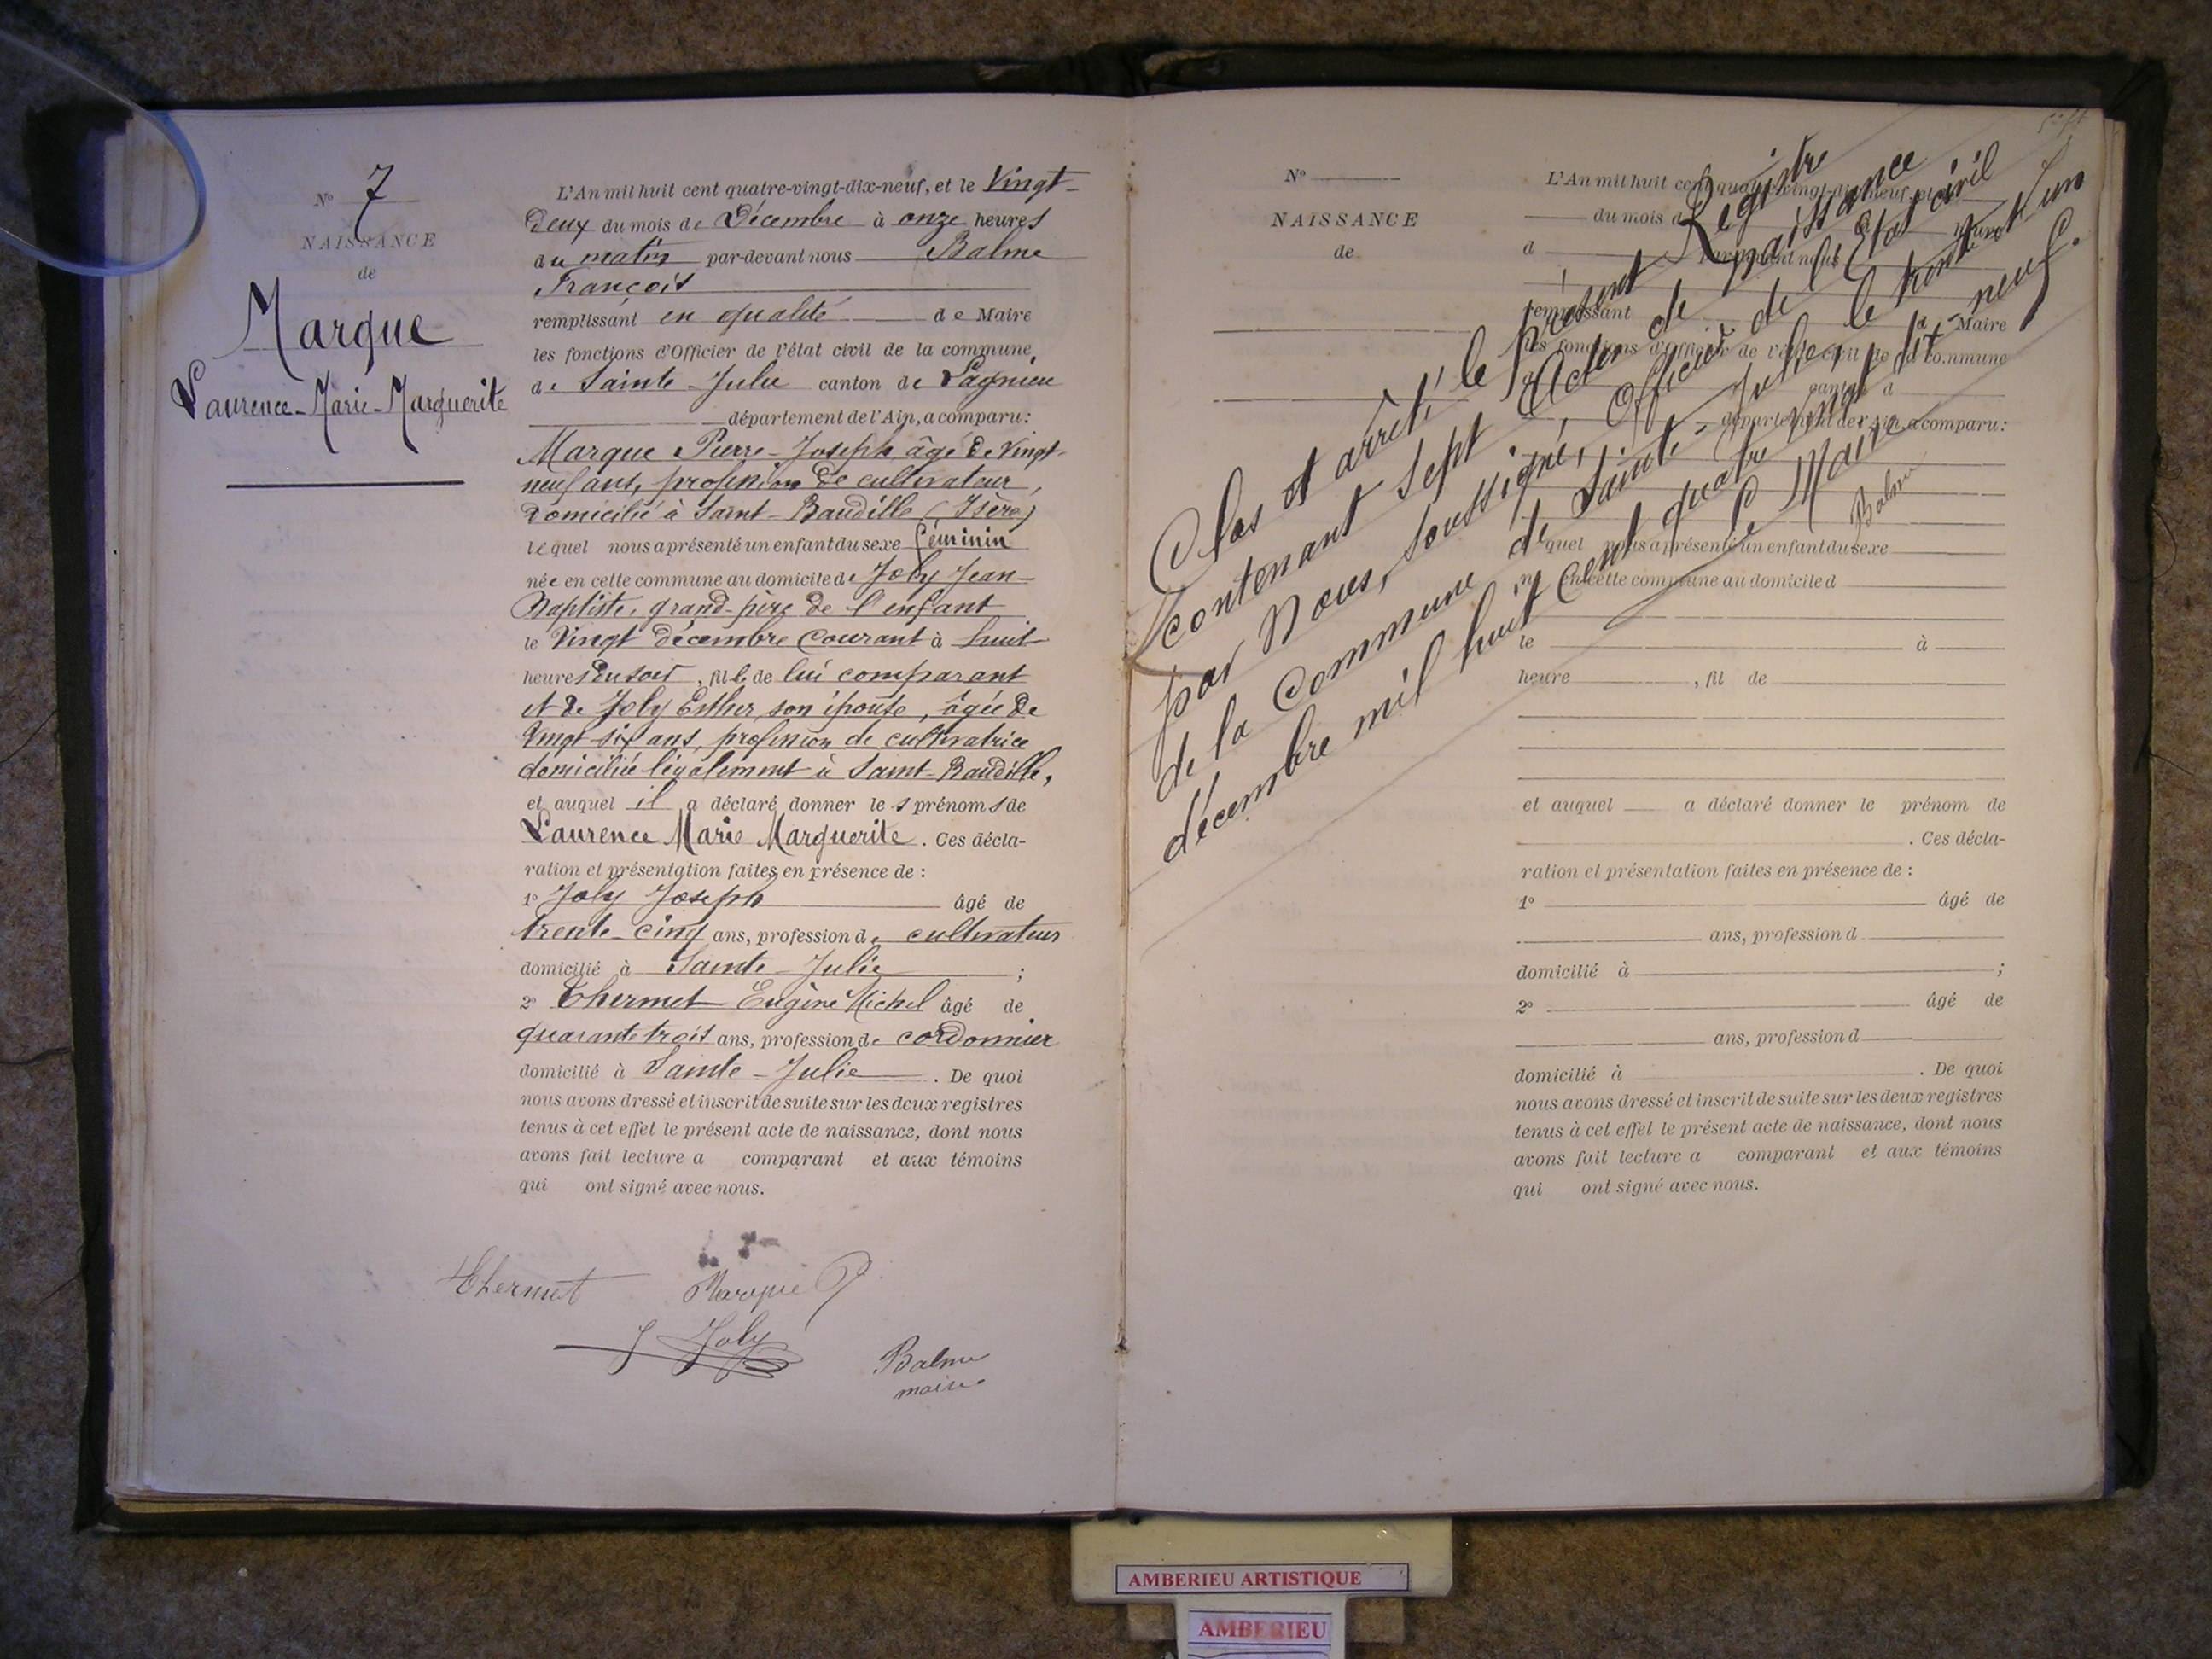 N° 7
NAISSANCE
de
Marque
Laurence-Marie-Marguerite
L'An mil huit cent quatre-vingt-dix-neuf, et le Vingt-
deux du mois de Décembre à onze heures
du matin par-devant nous Balme
François
remplissant en qualité de Maire
les fonctions d'Officier de l'état civil de la commune
de Sainte-Julie canton de Lagnieu
département de l'Ain, a comparu:
Marque Pierre-Joseph âgé de Vingt-
neuf ans, profession de cultivateur,
domicilié à Saint-Baudille (Isère)
lequel nous a présenté un enfant du sexe féminin
née en cette commune au domicile de Joly Jean-
Baptiste, grand-père de l'enfant
le Vingt décembre courant à huit
heures du soir, fille de lui comparant
et de Joly Esther son épouse, âgée de
Vingt-six ans, profession de cultivatrice
domiciliée légalement à Saint-Baudille,
et auquel il a déclaré donner les prénoms de
Laurence Marie Marguerite. Ces décla-
ration et présentation faites en présence de :
1° Joly Joseph âgé de
trente-cinq ans, profession de cultivateur
domicilié à Sainte-Julie ;
2° Thermet Eugène Michel âgé de
quarante trois ans, profession de cordonnier
domicilié à Sainte-Julie. De quoi
nous avons dressé et inscrit de suite sur les deux registres
tenus à cet effet le présent acte de naissance, dont nous
avons fait lecture a comparant et aux témoins
qui ont signé avec nous.
Thermet Marque P
J Joly
Balme
maire
N°
NAISSANCE
de
L'An mil huit cent quatre-vingt-dix-neuf, et le
du mois d à heure
d par-devant nous
remplissant d Maire
les fonctions d'Officier de l'état civil de la commune
d canton d
département de l'Ain, a comparu:
quel nous a présenté un enfant du sexe
n en cette commune au domicile d
le à
heure , fil de
et auquel a déclaré donner le prénom de
. Ces décla-
ration et présentation faites en présence de :
1° âgé de
ans, profession d
domicilié à ;
2° âgé de
ans, profession d
domicilié à . De quoi
nous avons dressé et inscrit de suite sur les deux registres
tenus à cet effet le présent acte de naissance, dont nous
avons fait lecture a comparant et aux témoins
qui ont signé avec nous.
Clos et arrêté le présent Registre
contenant sept Actes de naissance
par Nous, soussigné, Officier de l'Etat civil
de la Commune de Sainte-Julie, le trente et un
décembre mil huit cent quatre vingt dix-neuf.
Le Maire
Balme
AMBERIEU ARTISTIQUE
AMBERIEU